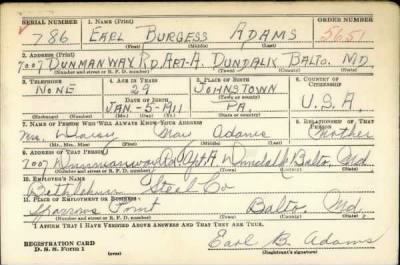 SERIAL NUMBER 1. NAME (Print) ORDER NUMBER
786 EARL BURGESS ADAMS 5651
(First) (Middle) (Last)
2. ADDRESS (Print)
7007 DUNMANWAY RD. APT-A. DUNDALK BALTO. MD.
(Number and street or R. F. D. number) (Town) (County) (State)
3. TELEPHONE 4. AGE IN YEARS 5. PLACE OF BIRTH 6. COUNTRY OF CITIZENSHIP
NONE 29 JOHNSTOWN
DATE OF BIRTH (Town or county) U.S.A.
JAN-5-1911 PA.
(Exchange) (Number) (Mo.) (Day) (Yr.) (State or country)
7. NAME OF PERSON WHO WILL ALWAYS KNOW YOUR ADDRESS 8. RELATIONSHIP OF THAT PERSON
Mrs. Daisy May Adams Mother
(Mr., Mrs., Miss) (First) (Middle) (Last)
9. ADDRESS OF THAT PERSON
7007 Dunmanway Rd Apt A. Dundalk Balto, Md.
(Number and street or R. F. D. number) (Town) (County) (State)
10. EMPLOYER'S NAME
Bethlehem Steel Co
11. PLACE OF EMPLOYMENT OR BUSINESS
Sparrows Point Balto. Md.
(Number and street or R. F. D. number) (Town) (County) (State)
I AFFIRM THAT I HAVE VERIFIED ABOVE ANSWERS AND THAT THEY ARE TRUE.
REGISTRATION CARD
D. S. S. Form 1 (over) Earl B. Adams
(Registrant's signature)